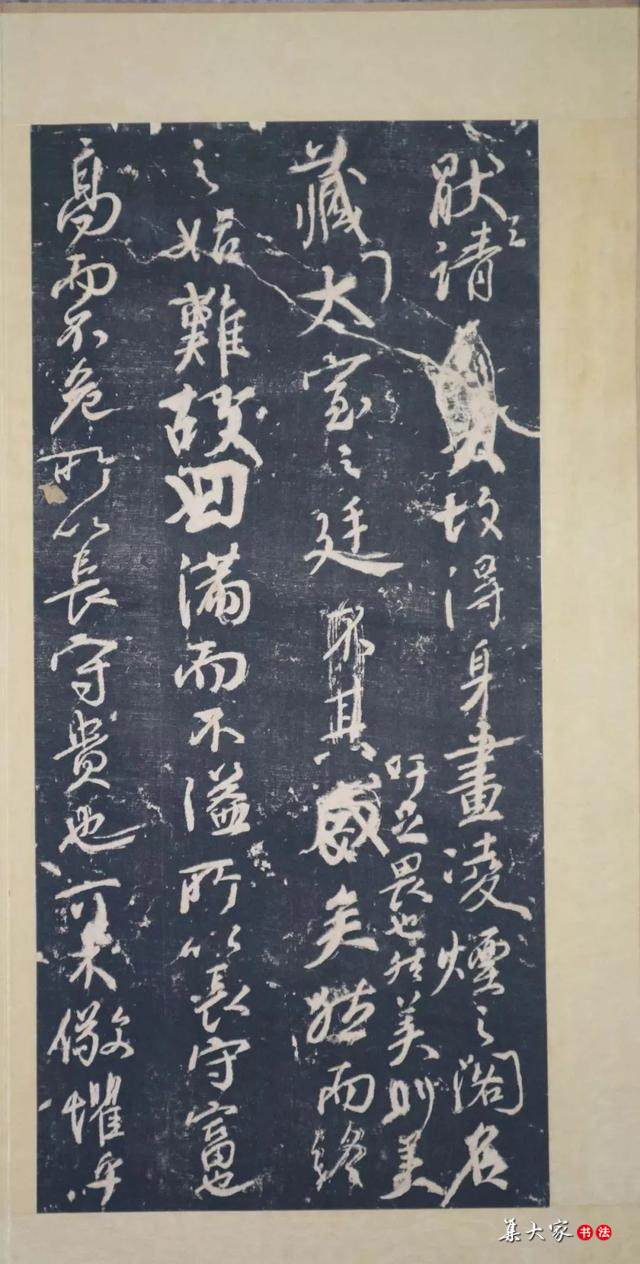 猒之請 故得身畫凌煙之閣名
吁足畏也然美則美
藏太室之廷 矣然而終
之始難故曰滿而不溢所以長守富也
高而不危所以長守貴也可不儆懼乎
集大家书法